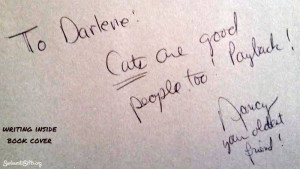 To Darlene!
Cats are good
people too! Payback!
Nancy
your oldest
friend!
WRITING INSIDE
BOOK COVER